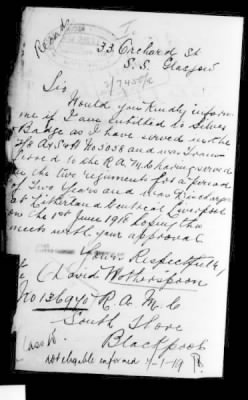 Records
33 Orchard St
S. S. Glasgow
Sir
Would you kindly inform
me if I am entitled to Silver
Badge as I have served in the
A & S H No 3038 and was Trans
ferred to the R.A.M.C having served
in the two regiments for a period
of Two Years and was Discharged
at Litherland Liverpool
on the 1st June 1918 hoping this
meets with your approval
Yours Respectfully
David Wotherspoon
No 136970 R.A.M.C
South Shore
Blackpool
not eligible informed 7-1-19